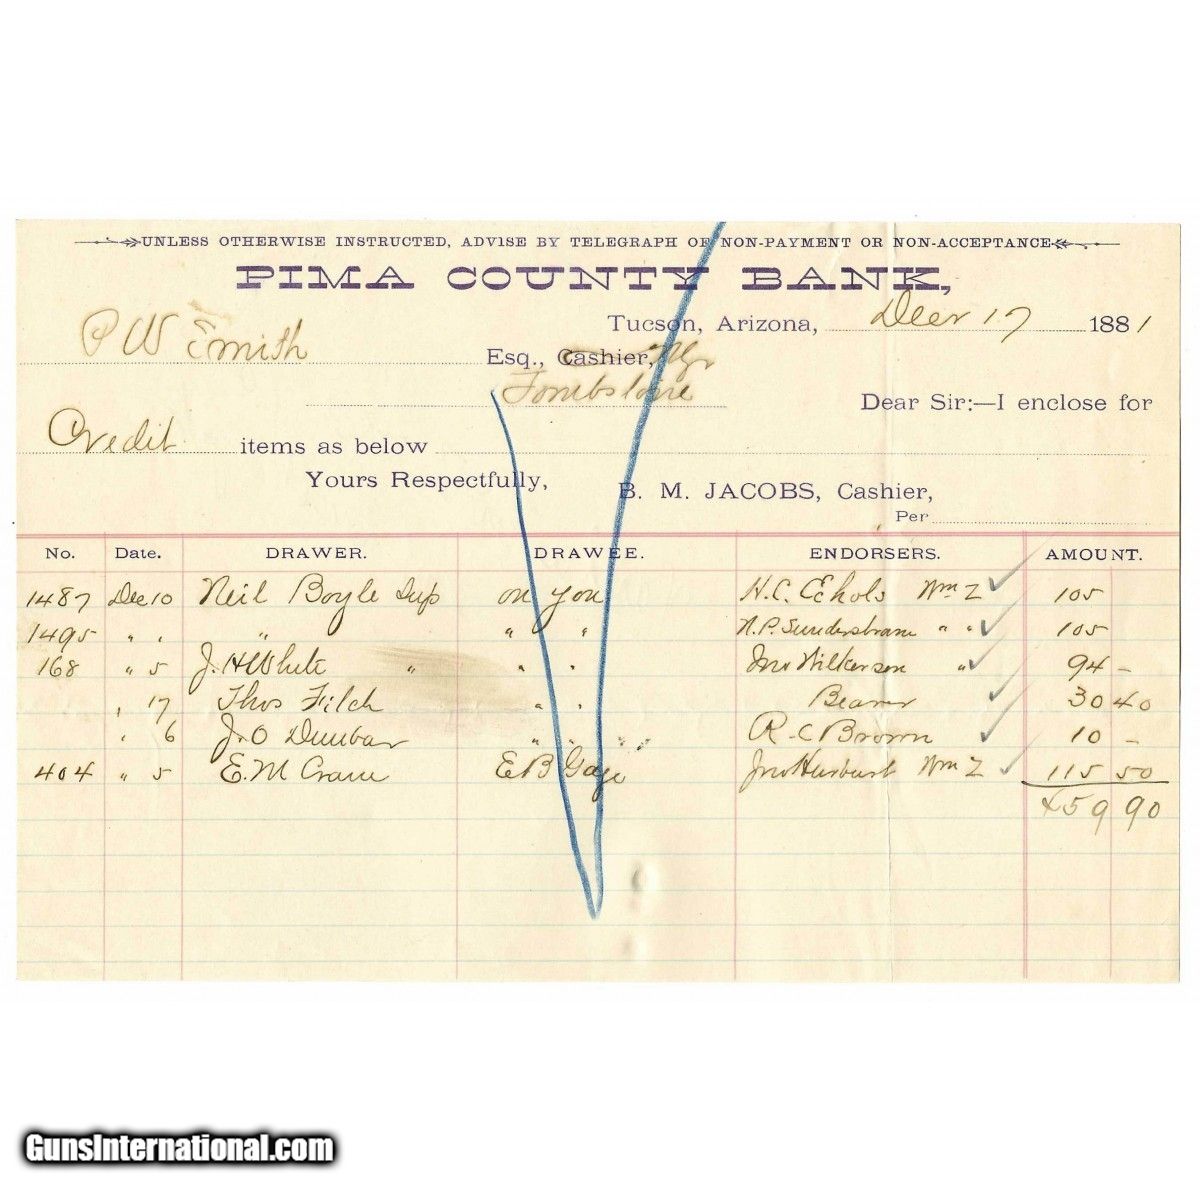 UNLESS OTHERWISE INSTRUCTED, ADVISE BY TELEGRAPH OF NON-PAYMENT OR NON-ACCEPTANCE
PIMA COUNTY BANK,
Tucson, Arizona, Decr 17 1881
P W Smith Esq., Cashier, Mgr
Tombstone Dear Sir:—I enclose for
Credit items as below
Yours Respectfully,
B. M. JACOBS, Cashier,
Per
No. Date. DRAWER. DRAWEE. ENDORSERS. AMOUNT.
1487 Dec 10 Neil Boyle Sup on you H.C. Echols Wm Z 105
1495 " " " " " N.P. " " 105
168 " 5 J. H White " " " Jno Wilkerson " 94 -
" 17 Thos Fitch " " Bearer 30 40
" 6 J.O Dunbar " " " " R.C Brown 10 -
404 " 5 E. M Crane E B Gage Jno Wm Z 115 50
459 90
GunsInternational.com